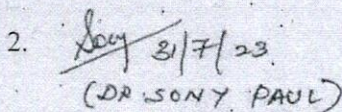 2. Sony 31/7/23
(DR SONY PAUL)